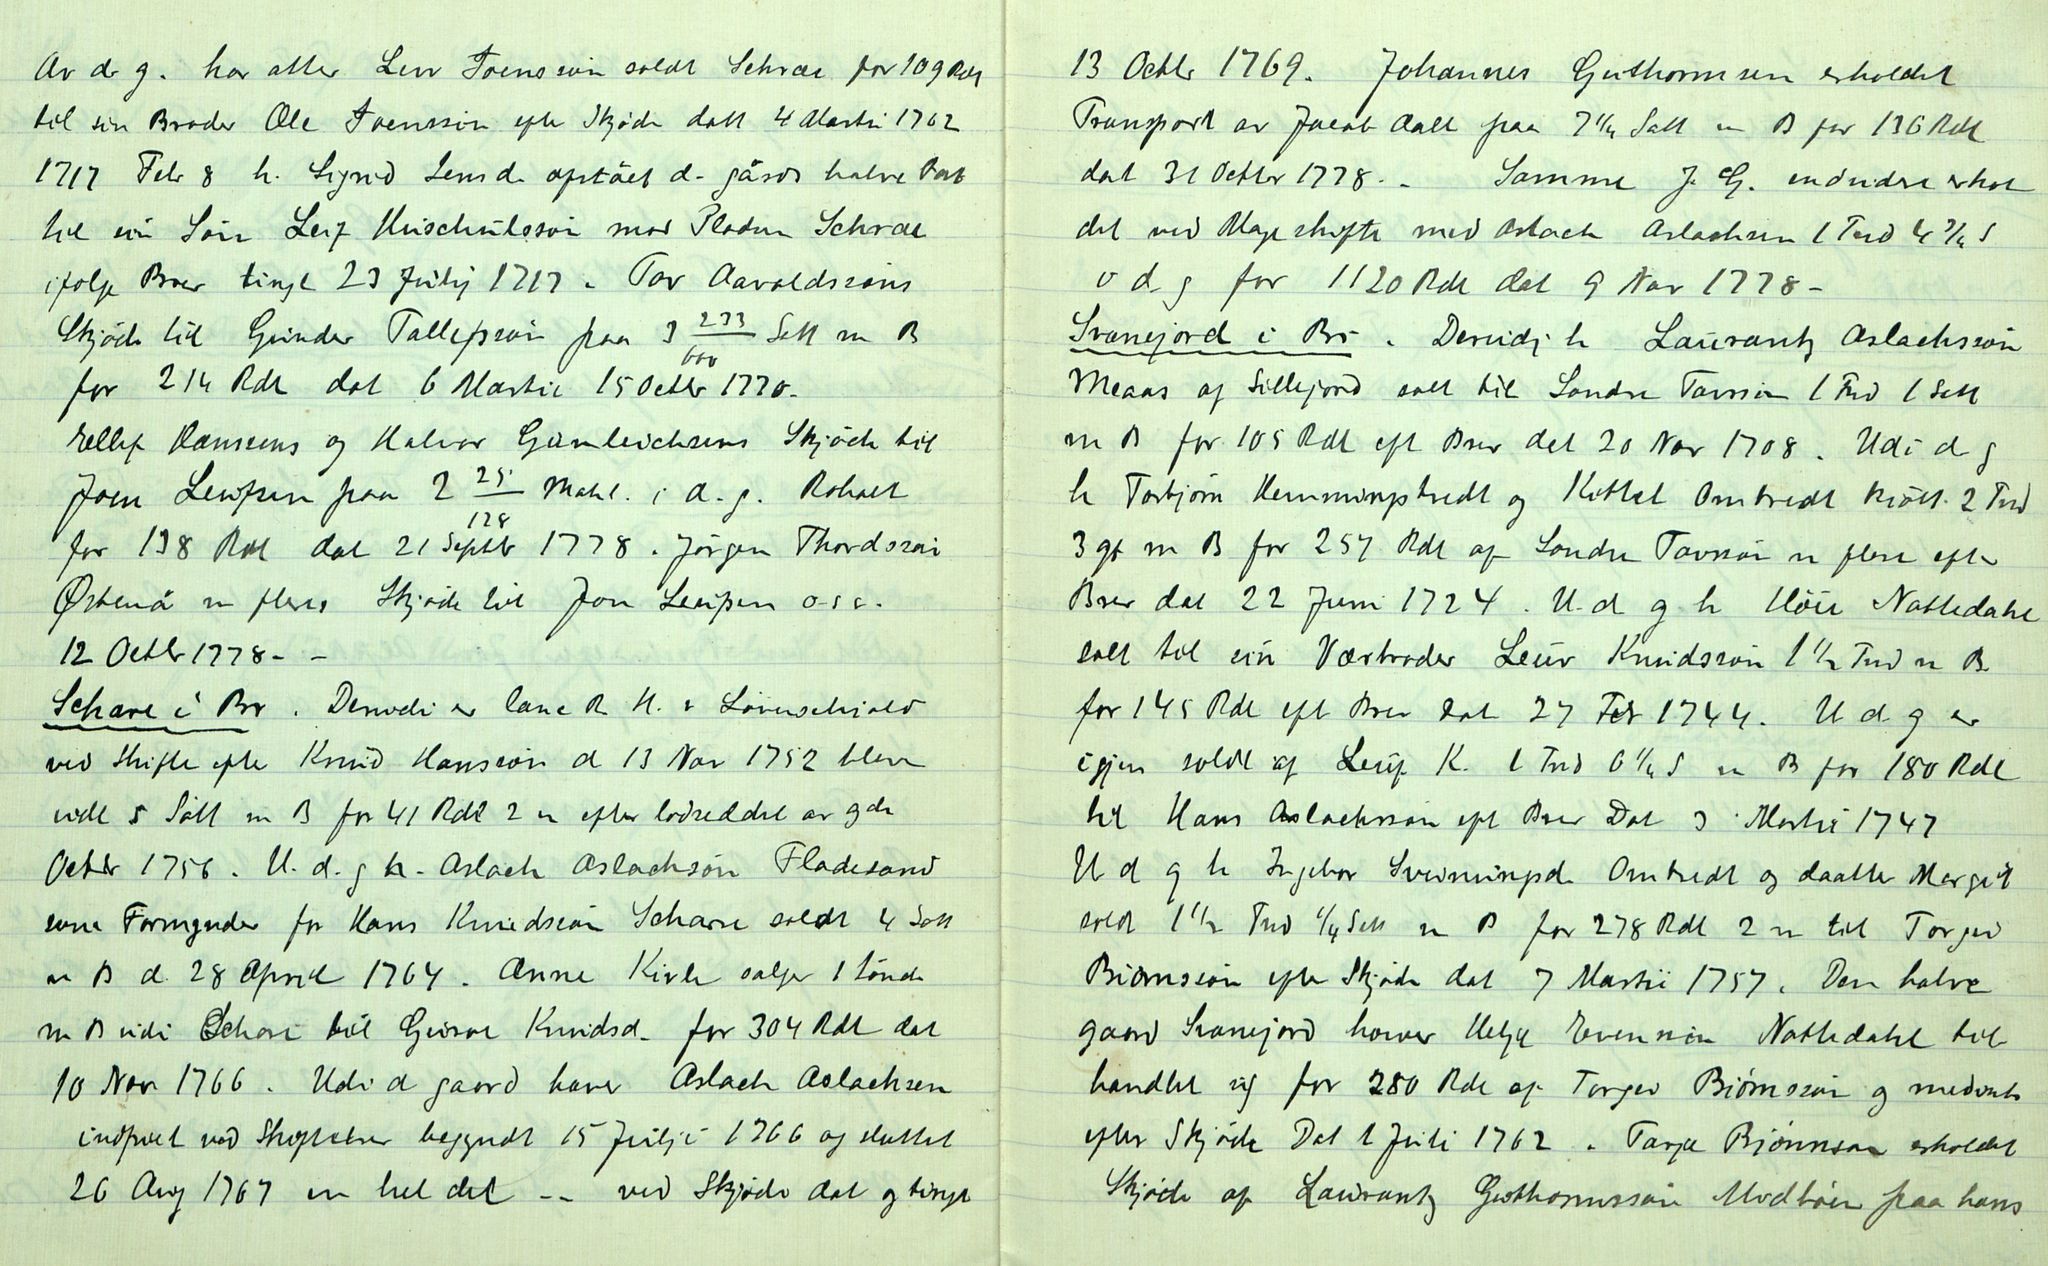 Av d. g. har atter Levv Svenssön soldt Schræe for 109 Rdl
til sin Broder Ole Svenssön efte Skjöde datt 4 Martii 1762
1717 Febr 8 h. Sigrid Jensd. d. gårds halve Part
til sin Sön Leif mod Pladsen Schræe
ifolge Brev tingl 23 Julij 1717. Tov Aavoldssöns
Skjöde til Gunder Tallefssön paa 3 233/600 Sett m B
for 214 Rdl dat 6 Martii 15 Octbr 1770.
Ellef Hanssens og Halvor Gunleichsens Skjöde til
Joen Leufsen paa 2 25/128 Mahl. i d. g. Roholt
for 138 Rdl dat 21 Septbr 1778. Jörgen Thordssön
Östenå m fleres Skjöde til Jon Leufsen o.s.v.
12 Octbr 1778 - -
Schare i Br. Derudi er lane H. v Lövenschiold
ved Skifte efte Knud Hanssön d 13 Nov 1752 bleven
udl 5 Sätt m B for 41 Rdl 2 m efter lodseddel av 9de
Octbr 1756. U. d. g h. Aslach Aslachsön Fladesand
som Formynder for Hans Knudssön Schare soldt 4 Sett
m B d. 28 April 1764. Anne Kivle solgt 1 tönde
m B udi Schare til Guroe Knudsd. for 304 Rdl dat
10 Nov 1766. Udi d gaard haver Aslach Aslachsen
ved begyndt 15 Julii 1766 og sluttet
26 Aug 1767 en hel del -- ved Skjöde dat og tingl
13 Octbr 1769. Johannes Guthormsen erholdet
Transport av Jacob Aall paa 7 1/4 Sett m B for 136 Rdl
dat 31 Octbr 1778. - Samme J. G. endvidere erhol
det ved Mageskifte med Aslach Aslachsen 1 Tnd 4 3/4 S
v d. g for 1120 Rdl dat 9 Nov 1778 -
Svanejord i Br. Derudj h Laurantz Aslachssön
Meaas af Sillejord solt til Sondre Tovssön 1 Tnd 1 Sett
m B for 105 Rdl eft Brev dat 20 Nov 1708. Udi d g
h Torbjörn Hemmingstvedt og Kittel Omtvedt kiöbt 2 Tnd
3 gt m B for 257 Rdl af Sondre Tovssön m flere efter
Brev dat 22 Juni 1724. U. d g h Höie Nattedahl
solt til sin Værbroder Leuv Knudssön 1 1/2 Tnd m B
for 145 Rdl eft Brev dat 27 Febr 1744. U d g er
igjen soldt af Leuf K. 1 Tnd 0 1/4 S m B for 180 Rdl
til Hans Aslachssön eft Brev Dat 3 Martii 1747
U d g h Ingebor Svenningsd. Omtvedt og daatter Margit
soldt 1 1/2 Tnd 1/4 Sett m B for 278 Rdl 2 m til Torgeo
Biörnssön efte Skjöde dat 7 Martii 1757. Den halve
gaard Svanejord haver Helje Evensön Nattedahl til
handlet sig for 280 Rdl af Torgeo Biörnssön og medint.
efter Skjöde Dat 1 Juli 1762. Tarje Bjönnson erholdet
Skjöde af Laurantz Guthormssön Midböen paa hans